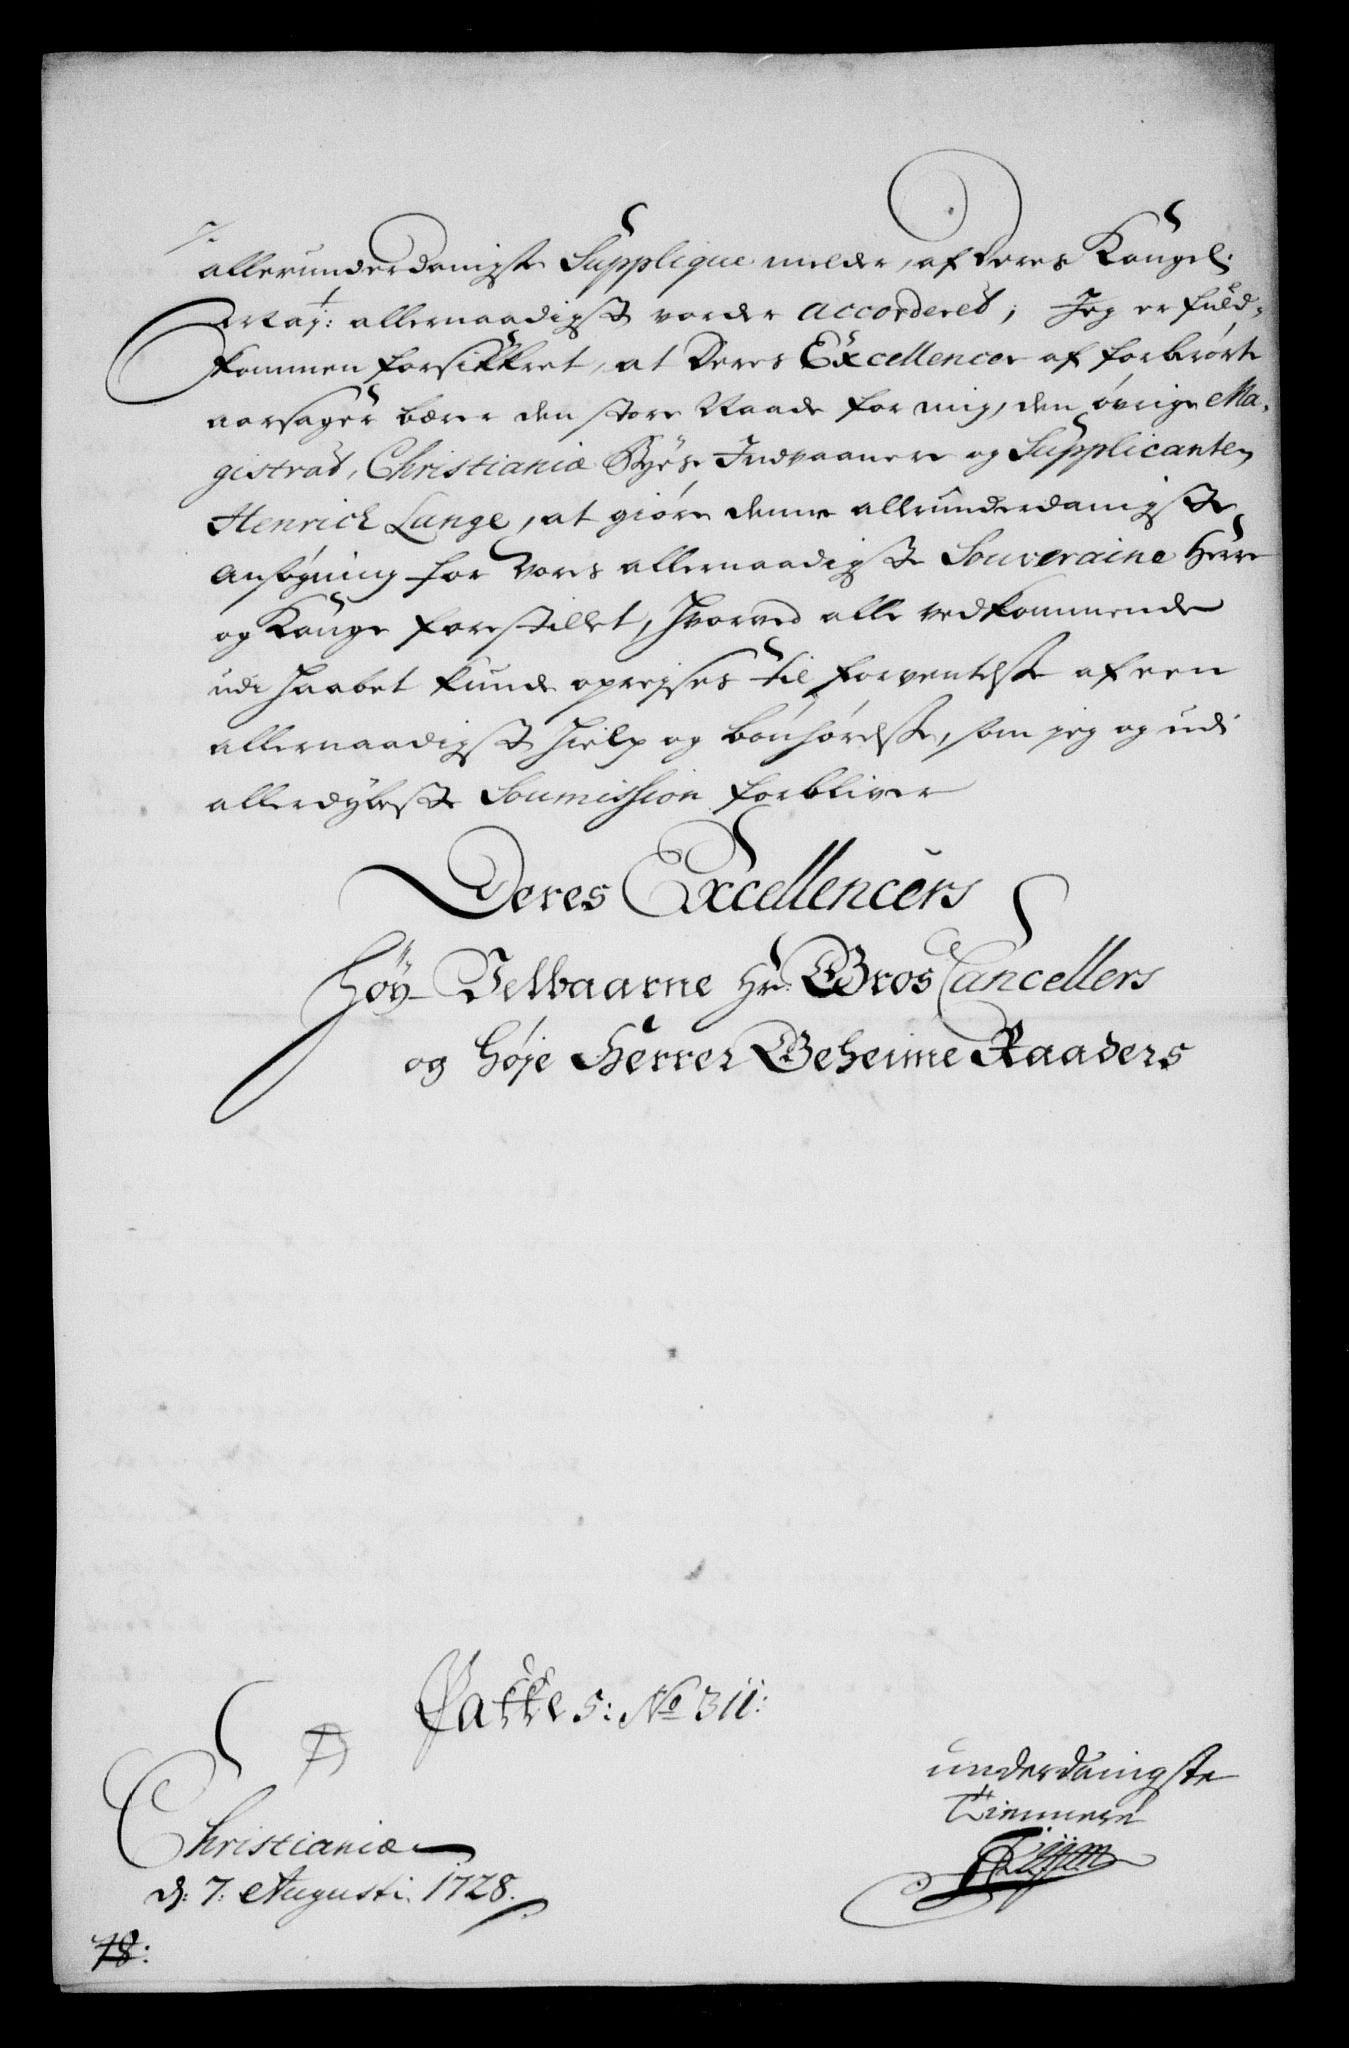 allerunderdanigste Supplique melder, af Deres Kongel:
May: allernaadigst vorder accorderet; Jeg er fuld-
kommen forsikkret, at Deres Excellencer af forberørte
aarsager bærer den store Naade for mig, den øvrige Ma-
gistrat, Christianiæ Byes Indvaanere og Supplicanten
Henrich Lange, at giøre denne allerunderdanigste
Ansøgning for Vores allernaadigste Souveraine Herre
og Konge forestillet, hvorved alle vedkommende
udi haabet kunde opreises til forventelse af een
allernaadigst hielp og bönhörelse, som jeg og udi
allerdybeste Soumission forbliver
Deres Excellencers
Høy-Velbaarne Hr: Gros Cancellers
og høje Herrer Geheime Raaders
Pakke 5: No 311:
underdanigste
Tienere
Christianiæ
d: 7: Augusti 1728.
78: